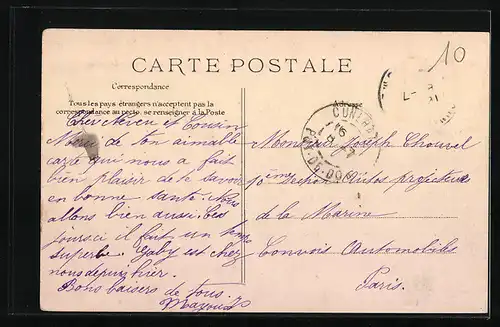 CARTE POSTALE
10
Correspondance
Tous les pays étrangers n'acceptent pas la
correspondance au recto, se renseigner à la Poste
Adresse
Cher Neveu et Cousin
Merci de ton aimable
carte qui nous a fait
bien plaisir de te savoir
en bonne santé. Nous
allons bien aussi. Ces
jours-ci il fait un temps
superbe. Gaby est chez
nous depuis hier.
Bons baisers de tous.
Monsieur Joseph
10ème Section Autos projecteurs
de la Marine
Convois Automobiles
Paris.
PUY-DE-DOME